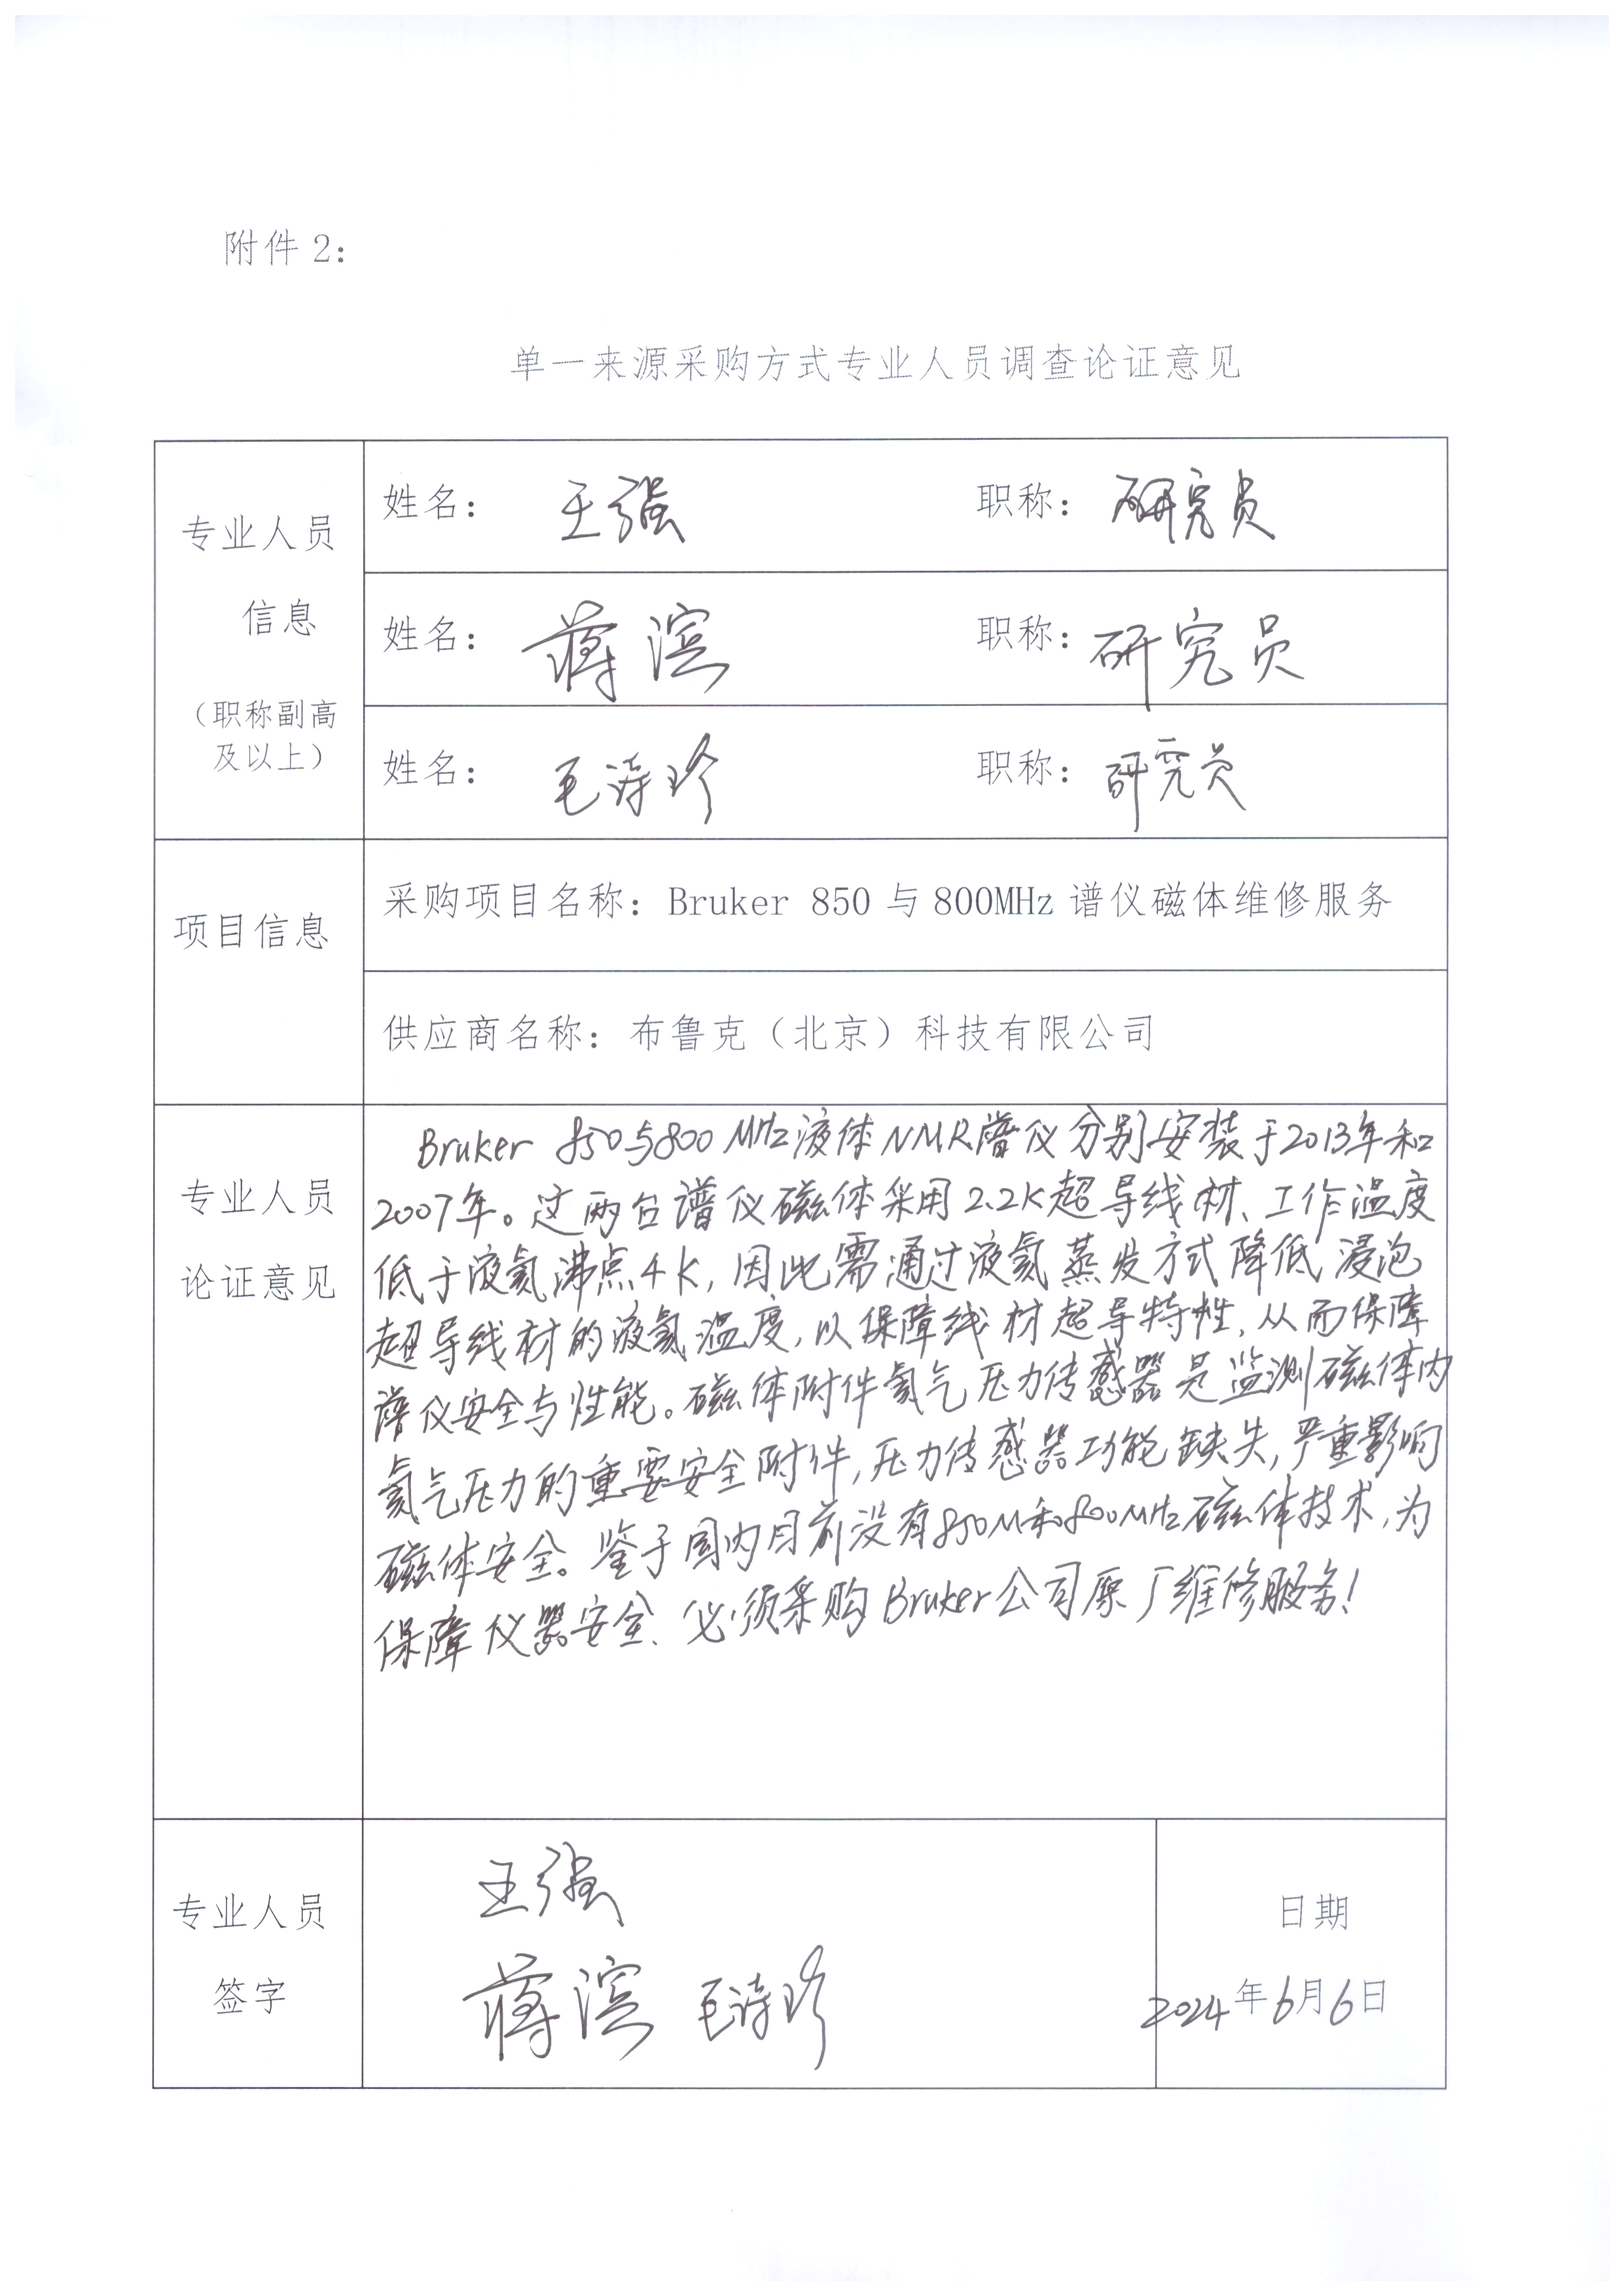 附件2：
单一来源采购方式专业人员调查论证意见
专业人员
信息
（职称副高
及以上）
姓名： 王强 职称： 研究员
姓名： 蒋滨 职称： 研究员
姓名： 毛诗珍 职称： 研究员
项目信息
采购项目名称：Bruker 850与800MHz谱仪磁体维修服务
供应商名称：布鲁克（北京）科技有限公司
专业人员
论证意见
Bruker 850与800MHz液体NMR谱仪分别安装于2013年和
2007年。这两台谱仪磁体采用2.2K超导线材、工作温度
低于液氦沸点4K，因此需通过液氦蒸发方式降低浸泡
超导线材的液氦温度，以保障线材超导特性，从而保障
谱仪安全与性能。磁体附件氦气压力传感器是监测磁体内
氦气压力的重要安全附件，压力传感器功能缺失，严重影响
磁体安全。鉴于国内目前没有850M和800MHz磁体技术，为
保障仪器安全、必须采购Bruker公司原厂维修服务！
专业人员
签字
王强
蒋滨 毛诗珍
日期
2024年6月6日